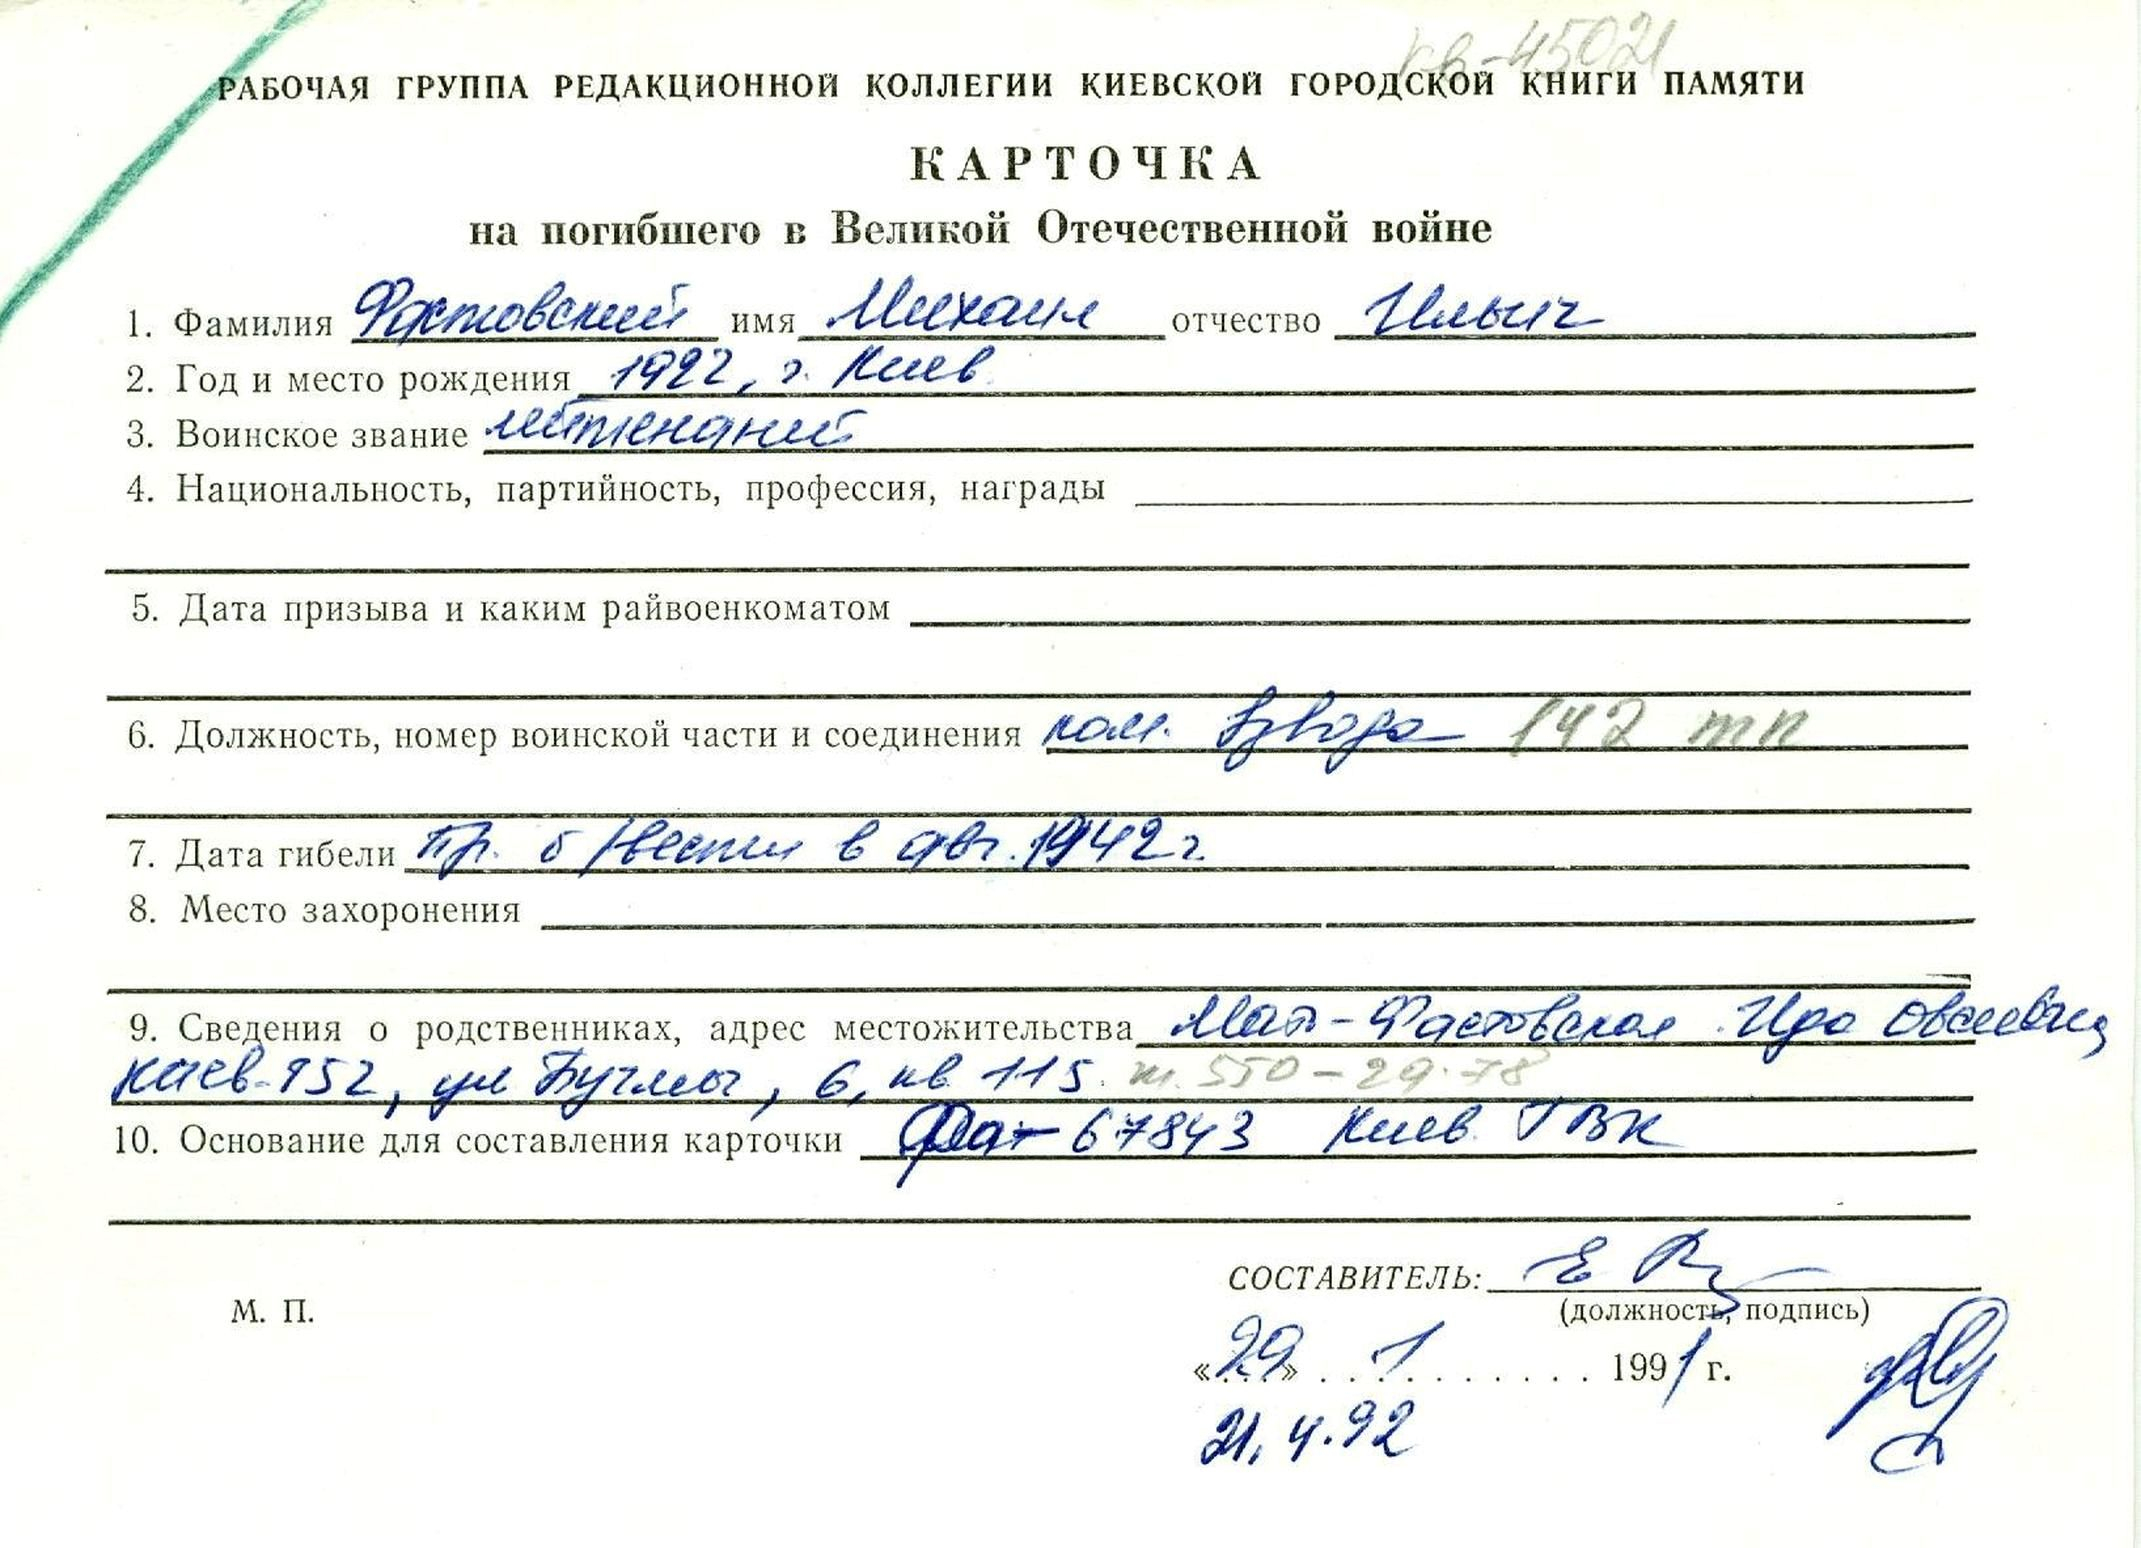 кв-45021
РАБОЧАЯ ГРУППА РЕДАКЦИОННОЙ КОЛЛЕГИИ КИЕВСКОЙ ГОРОДСКОЙ КНИГИ ПАМЯТИ
КАРТОЧКА
на погибшего в Великой Отечественной войне
1. Фамилия Фастовский имя Михаил отчество Ильич
2. Год и место рождения 1922, г. Киев
3. Воинское звание лейтенант
4. Национальность, партийность, профессия, награды
5. Дата призыва и каким райвоенкоматом
6. Должность, номер воинской части и соединения ком. взвода 142 тп
7. Дата гибели Пр. б/вести в авг. 1942 г.
8. Место захоронения
9. Сведения о родственниках, адрес местожительства Мать-Фастовская Ида
Киев-152, ул Бучмы, 6, кв 115. т. 550-29-78
10. Основание для составления карточки 67843 Киев. ГВК
СОСТАВИТЕЛЬ:
М. П.
(должность, подпись)
«29» 1 1991 г.
21.4.92